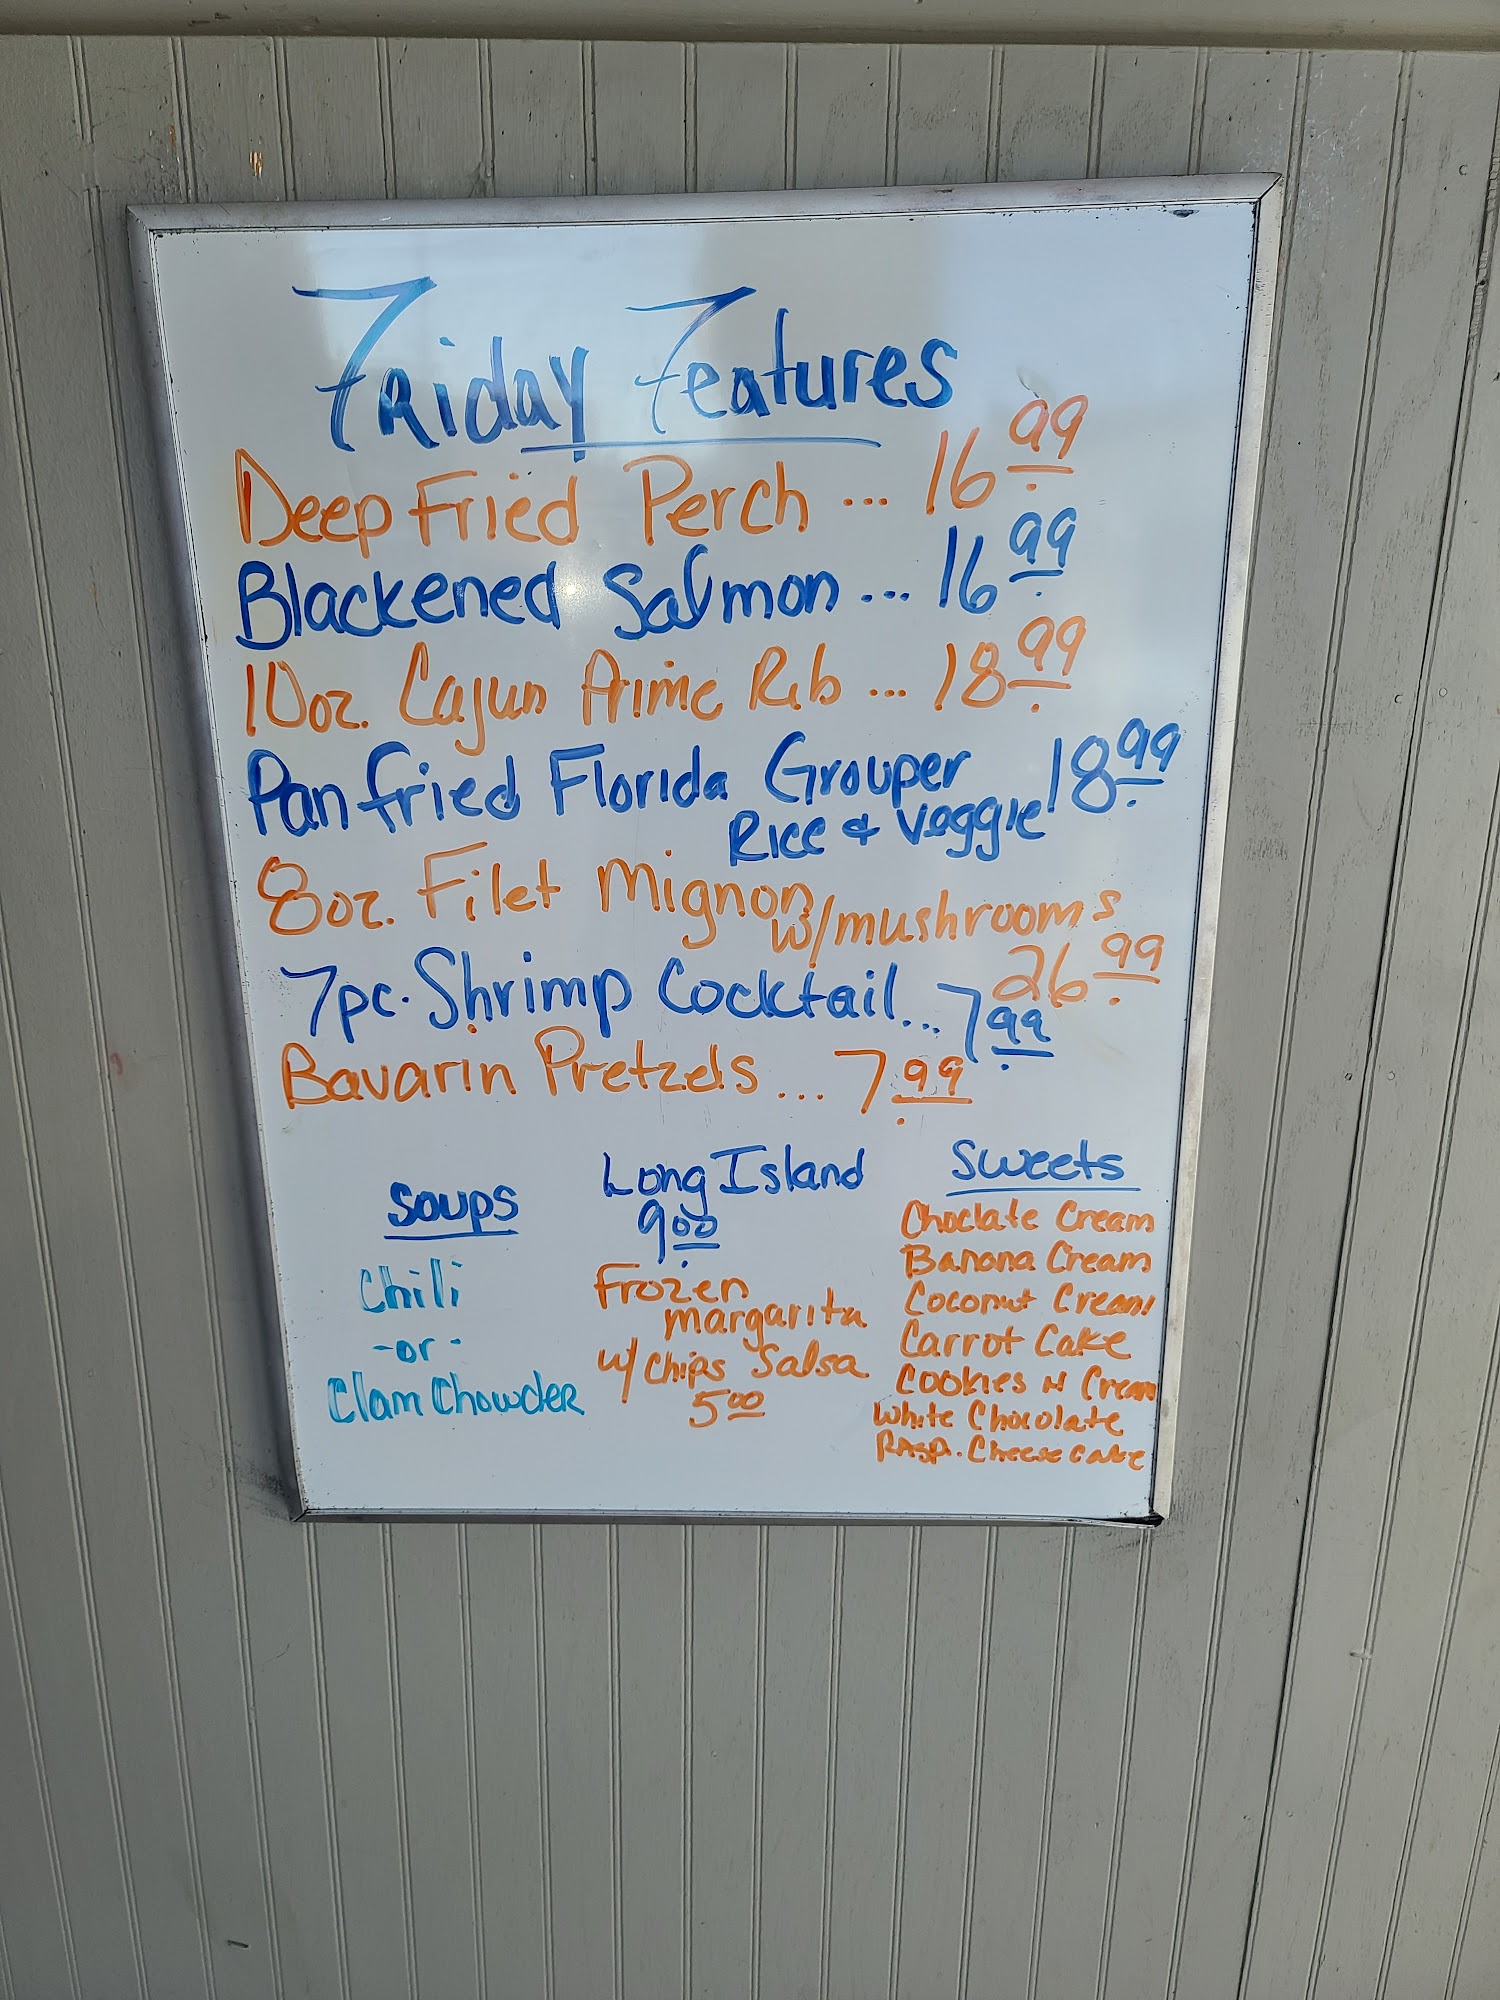 Friday Features
Deep Fried Perch ... 16 99
Blackened Salmon ... 16 99
10oz. Cajun Prime Rib ... 18 99
Pan fried Florida Grouper 18 99
Rice & Veggie
8oz. Filet Mignon
w/mushrooms
26 99
7pc. Shrimp Cocktail ... 7 99
Bavarin Pretzels ... 7 99
Soups
Chili
-or-
Clam Chowder
Long Island
9 00
Frozen
margarita
w/ Chips Salsa
5 00
Sweets
Choclate Cream
Banana Cream
Coconut Cream
Carrot Cake
Cookies N Cream
White Chocolate
Rasp. Cheesecake